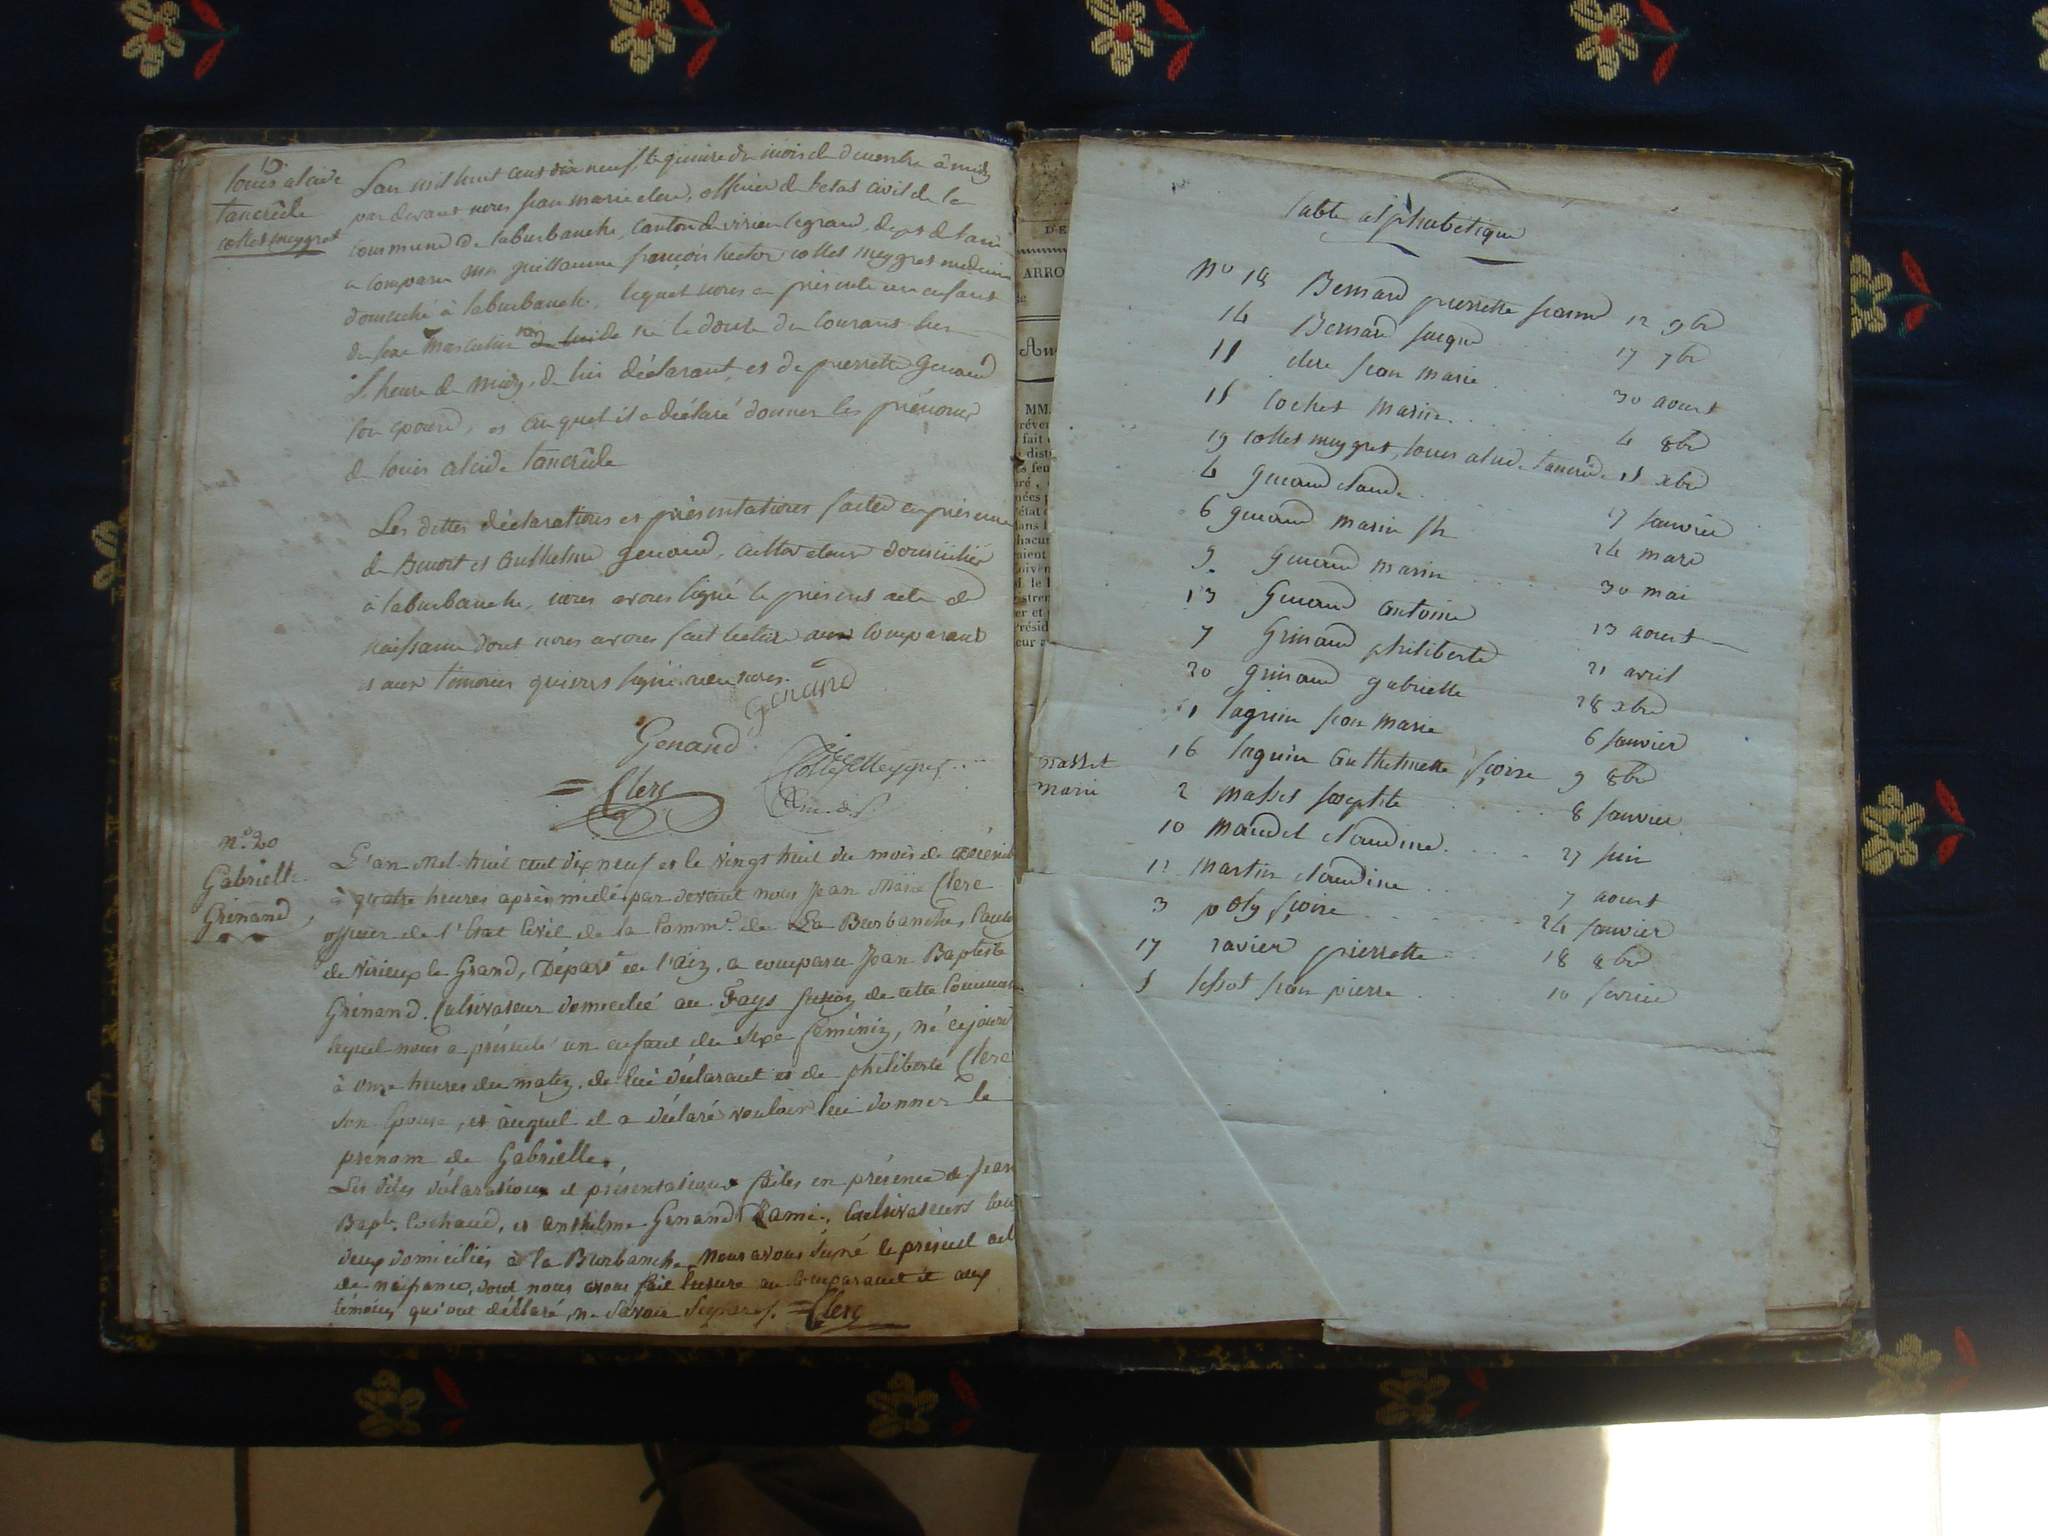 19
louis alcide
tancrède
collet meygret
L'an mil huit cent dix neuf, le quinze du mois de decembre à midy
par devant nous jean marie clerc, officier de l'etat civil de la
commune de laburbanche, canton de virieu legrand, depᵗ de l'ain
a comparu mʳ guillaume françois hector collet meygret medecin
domicilié à laburbanche, lequel nous a présenté un enfant
du sexe masculin né le douze du courant
l'heure de midy, de lui déclarant, et de pierrette Genand
son epouse, et auquel il a déclaré donner les prénoms
de louis alcide tancrède
Les dittes déclarations et présentations faites en présence
de Benoit et Anthelme genand, cultivateurs domiciliés
à laburbanche, nous avons signé le présent acte de
naissance dont nous avons fait lecture aux comparant
et aux témoins qui ont signé avec nous.
Genand
Genand
Collet Meygret
= Clerc
n.º 20
Gabrielle
Grinand
L'an mil-huit cent dix neuf et le vingt huit du mois de décemb
à quatre heures après midi par devant nous Jean Marie Clerc
officier de l'Etat Civil de la Comm.ᵉ de La Burbanche, Canton
de Virieux le Grand, Départ.ᵗ de l'ain, a comparu Jean Baptiste
Grinand, Cultivateur domicilié au Fays section de cette Commune
lequel nous a présenté un enfant du sexe féminin, né ce jourd
à onze heures du matin, de lui déclarant et de philiberte Clerc
son Epouse, et auquel il a déclaré vouloir lui donner le
prénom de Gabrielle.
Les dites déclarations et présentations faites en présence de Jean
Bapt. Cochaud, et anthelme Genand Lami, Cultivateurs tous
deux domiciliés à la Burbanche, Nous avons signé le présent act
de naissance, dont nous avons fait lecture au comparant et aux
témoins qui ont déclaré ne savoir signer. = Clerc
DE
ARRO
MM.
table alphabetique
Nº 18 Bernard pierrette jeanne 12 9bre
14 Bernard jacque . . . 17 7bre
11 clerc jean marie . . . 30 aoust
15 cochet marie . . . . 4 8bre
19 collet meygret, louis alcide tancrède 15 xbre
4 genand claude . . . 27 janvier
6 genand marie 24 mars
9 genand marie . . . . 30 mai
13 Genand antoine 13 aoust
7 Grinand philiberte 21 avril
20 grinand gabrielle 28 xbre
1 laguin jean marie 6 janvier
16 laguin anthelmette 9 8bre
masset
marie
2 masset josephte . . . . 8 janvier
10 maudet claudine . . . . 27 juin
12 martin claudine . . 7 aoust
3 poly . . . . . . 24 janvier
17 ravier pierrette . . 18 8bre
5 tissot jean pierre . . . . 10 fevrier